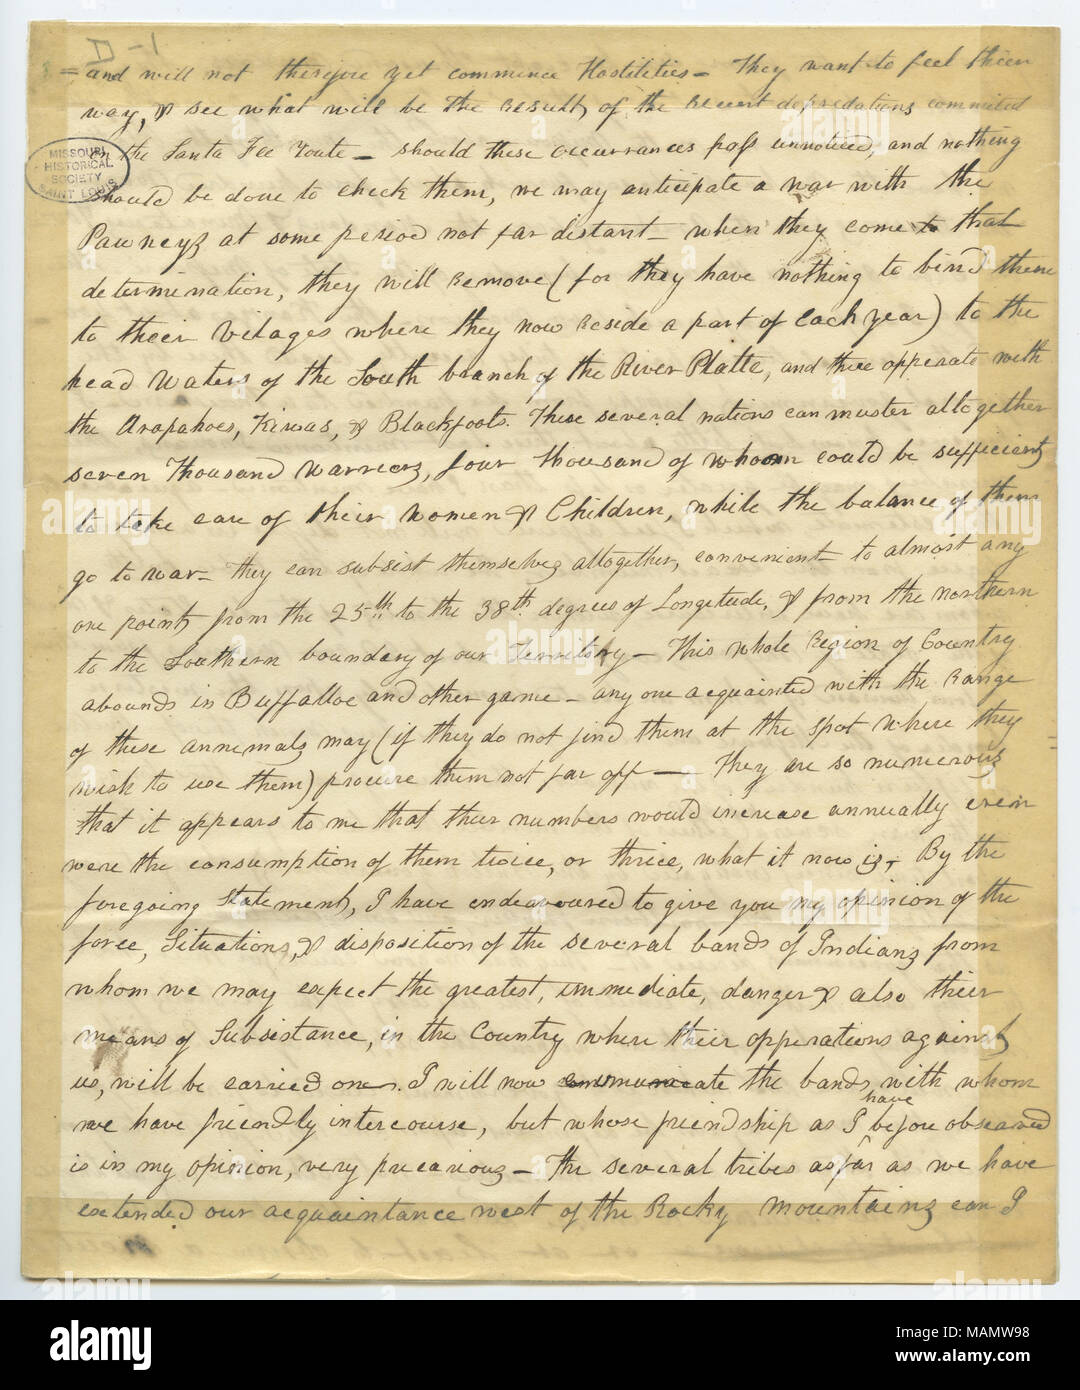 1-D
= and will not therefore yet commence Hostilities - They want to feel their
way, & see what will be the result, of the recent depredations commited
on the Santa Fee Route - should these occurrances pass unnoticed, and nothing
should be done to check them, we may anticipate a war with the
Pawneys at some period not far distant - when they come to that
determination, they will remove (for they have nothing to bind them
to their Vilages where they now reside a part of each year) to the
head Waters of the South branch of the River Platte, and there opperate with
the Arapahoes, Kiwas, & Blackfoots. These several nations can muster altogether
seven Thousand Warriers, four thousand of whom could be sufficient
to take care of their Women & Children, while the balance of them
go to war - they can subsist themselves altogether, convenient to almost any
one point, from the 25th to the 38th degrees of Longitude, & from the northern
to the Southern boundary of our Territory - This whole Region of Country
abounds in Buffalloe and other game - any one acquainted with the Range
of these annemals may (if they do not find them at the spot where they
wish to use them) procure them not far off - They are so numerous
that it appears to me that their numbers would increase annually even
were the consumption of them twice, or thrice, what it now is, By the
foregoing Statement, I have endeavoured to give you my opinion of the
force, Situations, & disposition of the several bands of Indians from
whom we may expect the greatest, immediate, danger & also their
means of Subsistance, in the Country where their opperations against
us, will be carried on. I will now communicate the bands, with whom
we have friendly intercourse, but whose friendship as I have before observed
is in my opinion, very precarious - The several tribes as far as we have
extended our acquaintance west of the Rocky Mountains can I
MISSOURI
HISTORICAL
SOCIETY
SAINT LOUIS
alamy
Image ID: MAMW98
www.alamy.com